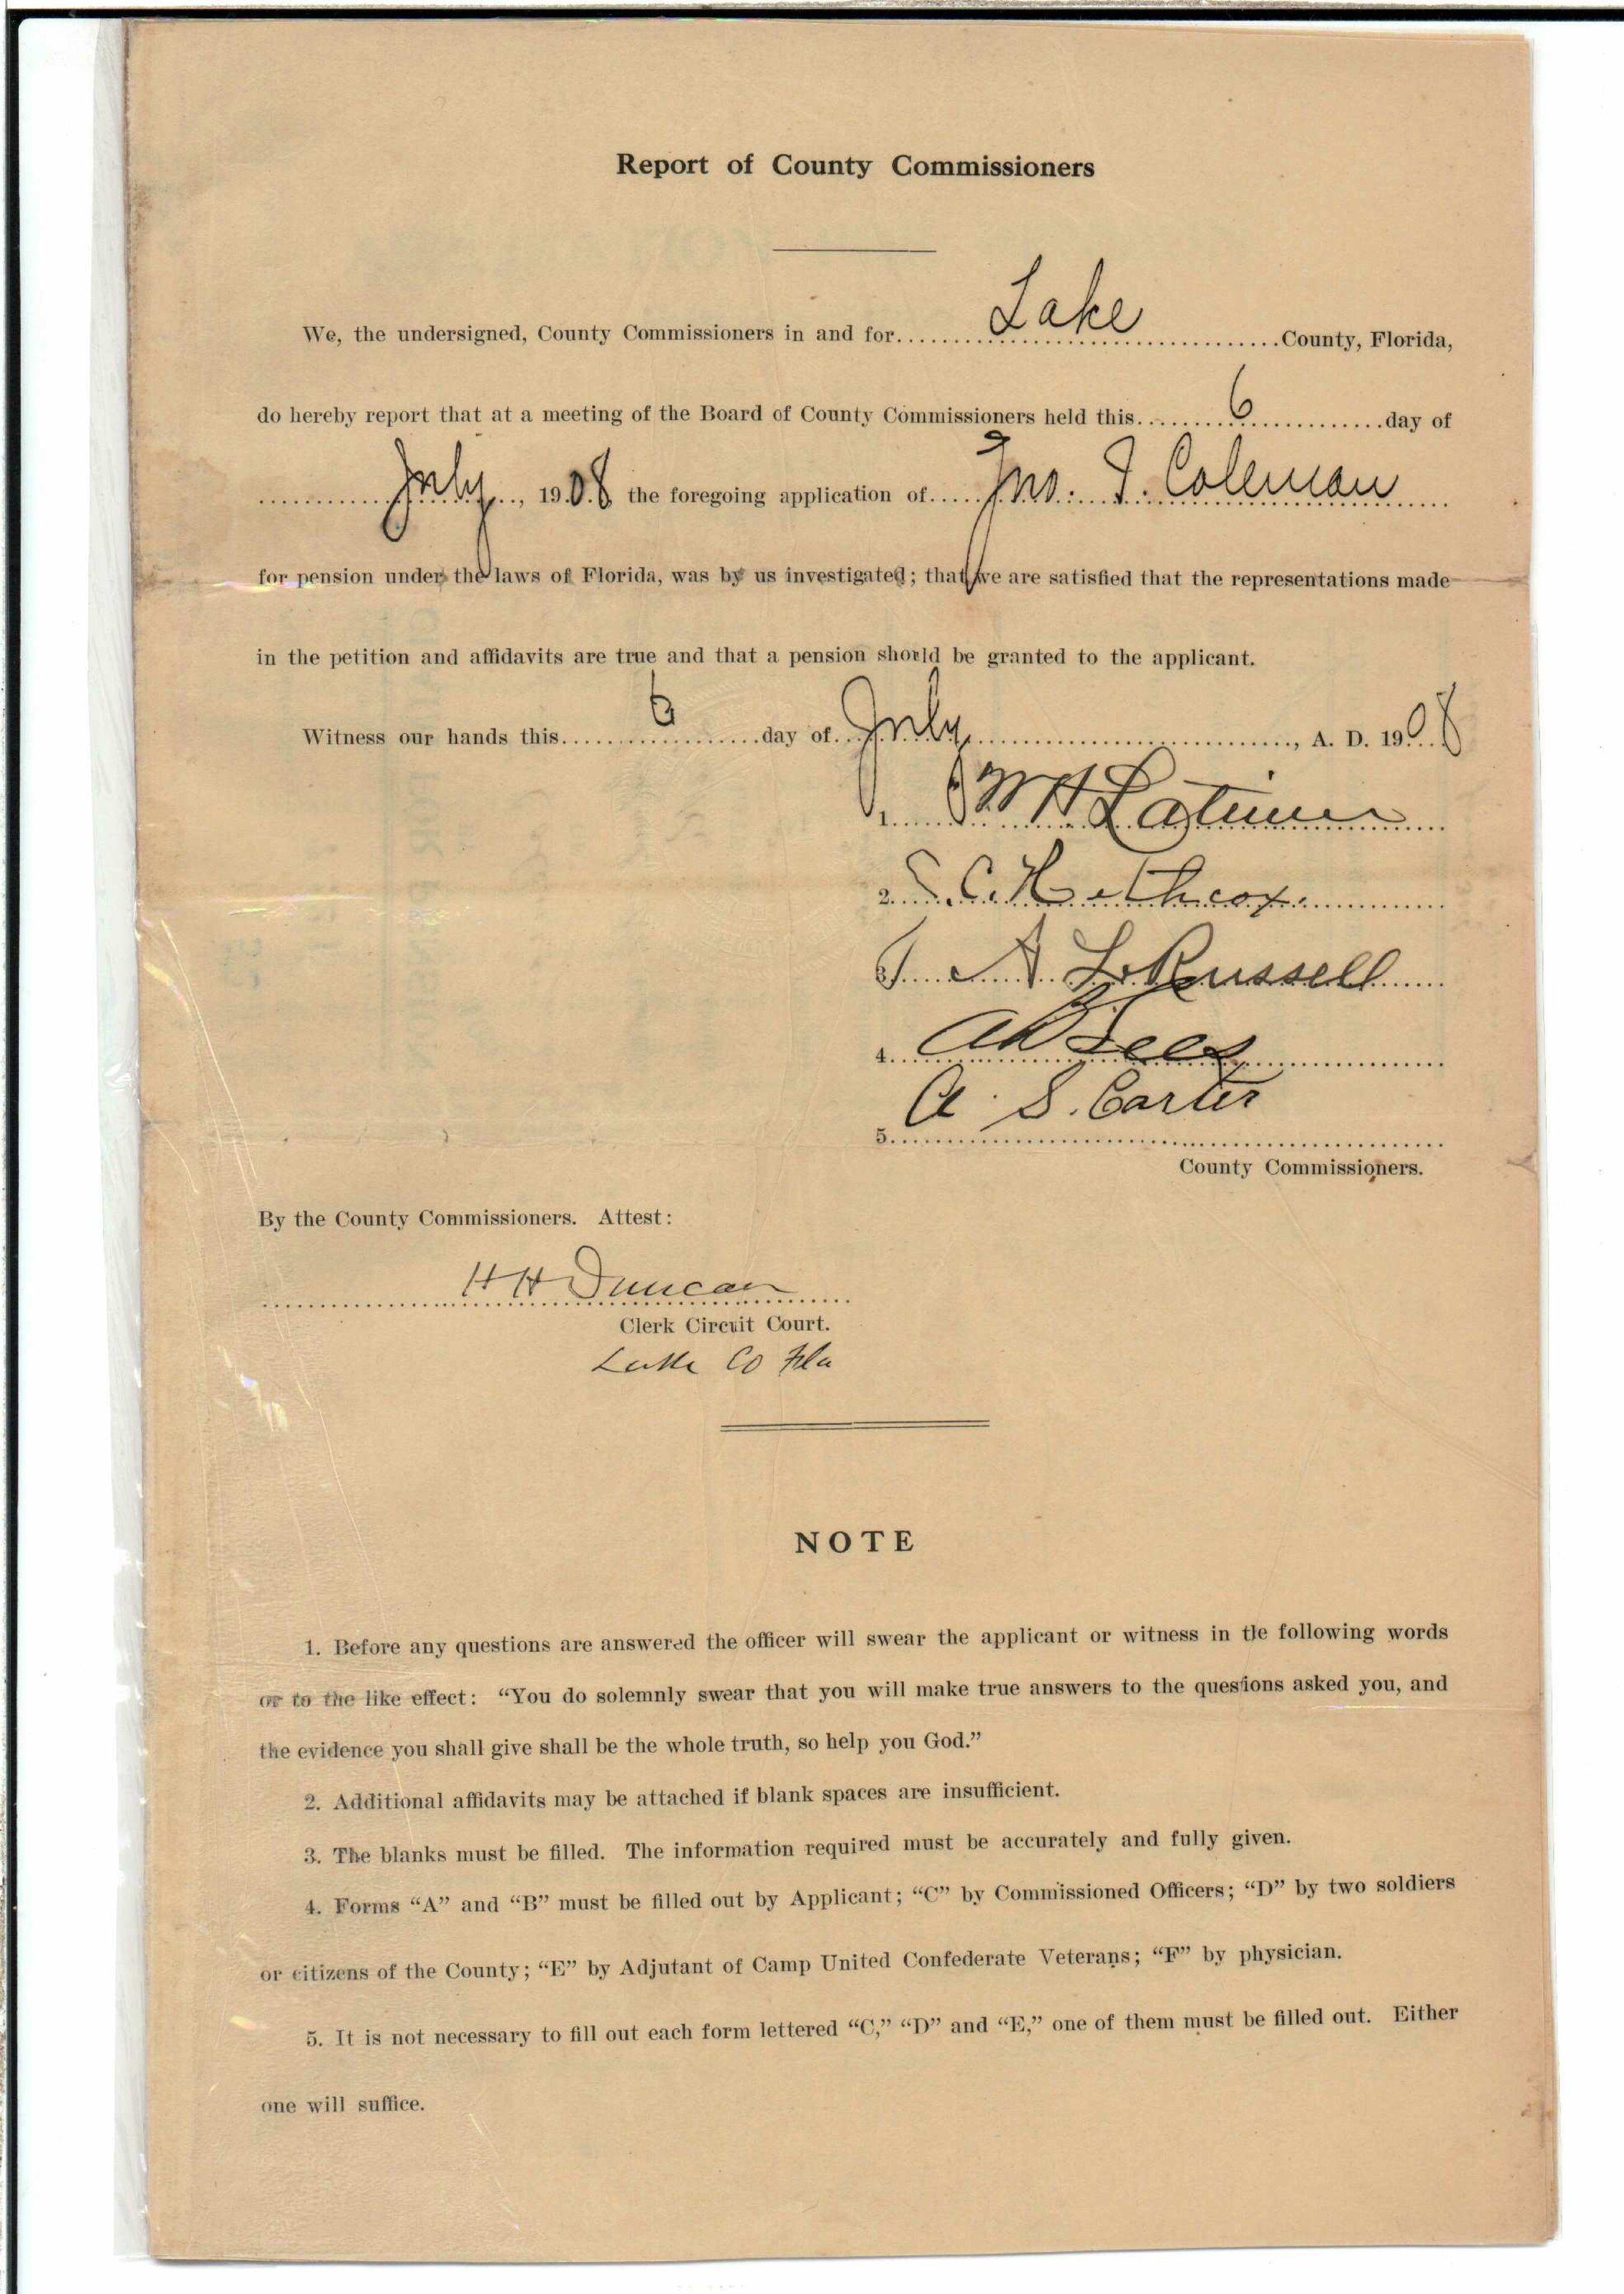 Report of County Commissioners
We, the undersigned, County Commissioners in and for Lake County, Florida,
do hereby report that at a meeting of the Board of County Commissioners held this 6 day of
July, 1908 the foregoing application of Jno. T. Coleman
for pension under the laws of Florida, was by us investigated; that we are satisfied that the representations made
in the petition and affidavits are true and that a pension should be granted to the applicant.
Witness our hands this 6 day of July, A. D. 1908
1. W H Latimer
2. S. C. Hethcox
3. A L Russell
4.
5. A. S. Carter
County Commissioners.
By the County Commissioners. Attest:
H H Duncan
Clerk Circuit Court.
Lake Co Fla
NOTE
1. Before any questions are answered the officer will swear the applicant or witness in the following words
or to the like effect: “You do solemnly swear that you will make true answers to the questions asked you, and
the evidence you shall give shall be the whole truth, so help you God.”
2. Additional affidavits may be attached if blank spaces are insufficient.
3. The blanks must be filled. The information required must be accurately and fully given.
4. Forms “A” and “B” must be filled out by Applicant; “C” by Commissioned Officers; “D” by two soldiers
or citizens of the County; “E” by Adjutant of Camp United Confederate Veterans; “F” by physician.
5. It is not necessary to fill out each form lettered “C,” “D” and “E,” one of them must be filled out. Either
one will suffice.